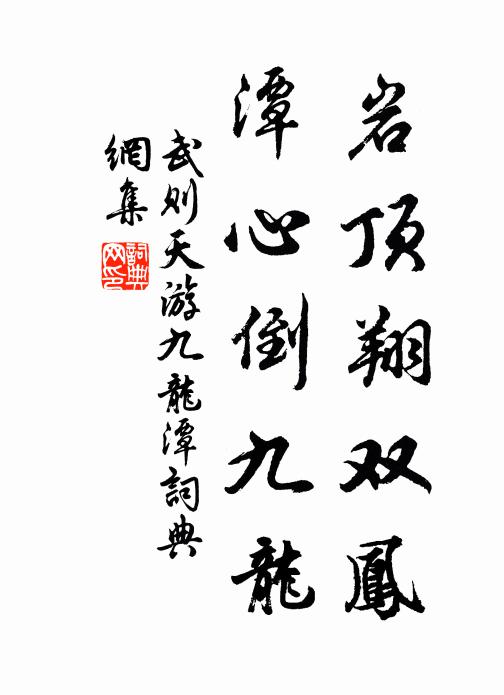 岩顶翔双鳳
潭心倒九龍
武则天游九龍潭詞典
網集
詞典网印